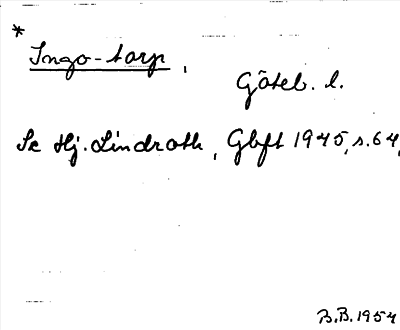 *
Ingo-torp,
Göteb. l.
Se Hj. Lindroth, Gbft 1945, s. 64,
B.B. 1954